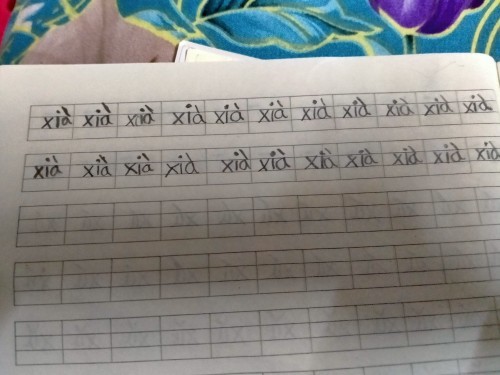 xià xià xià xià xià xià xià xià xià xià xià
xià xià xià xià xià xià xià xià xià xià xià